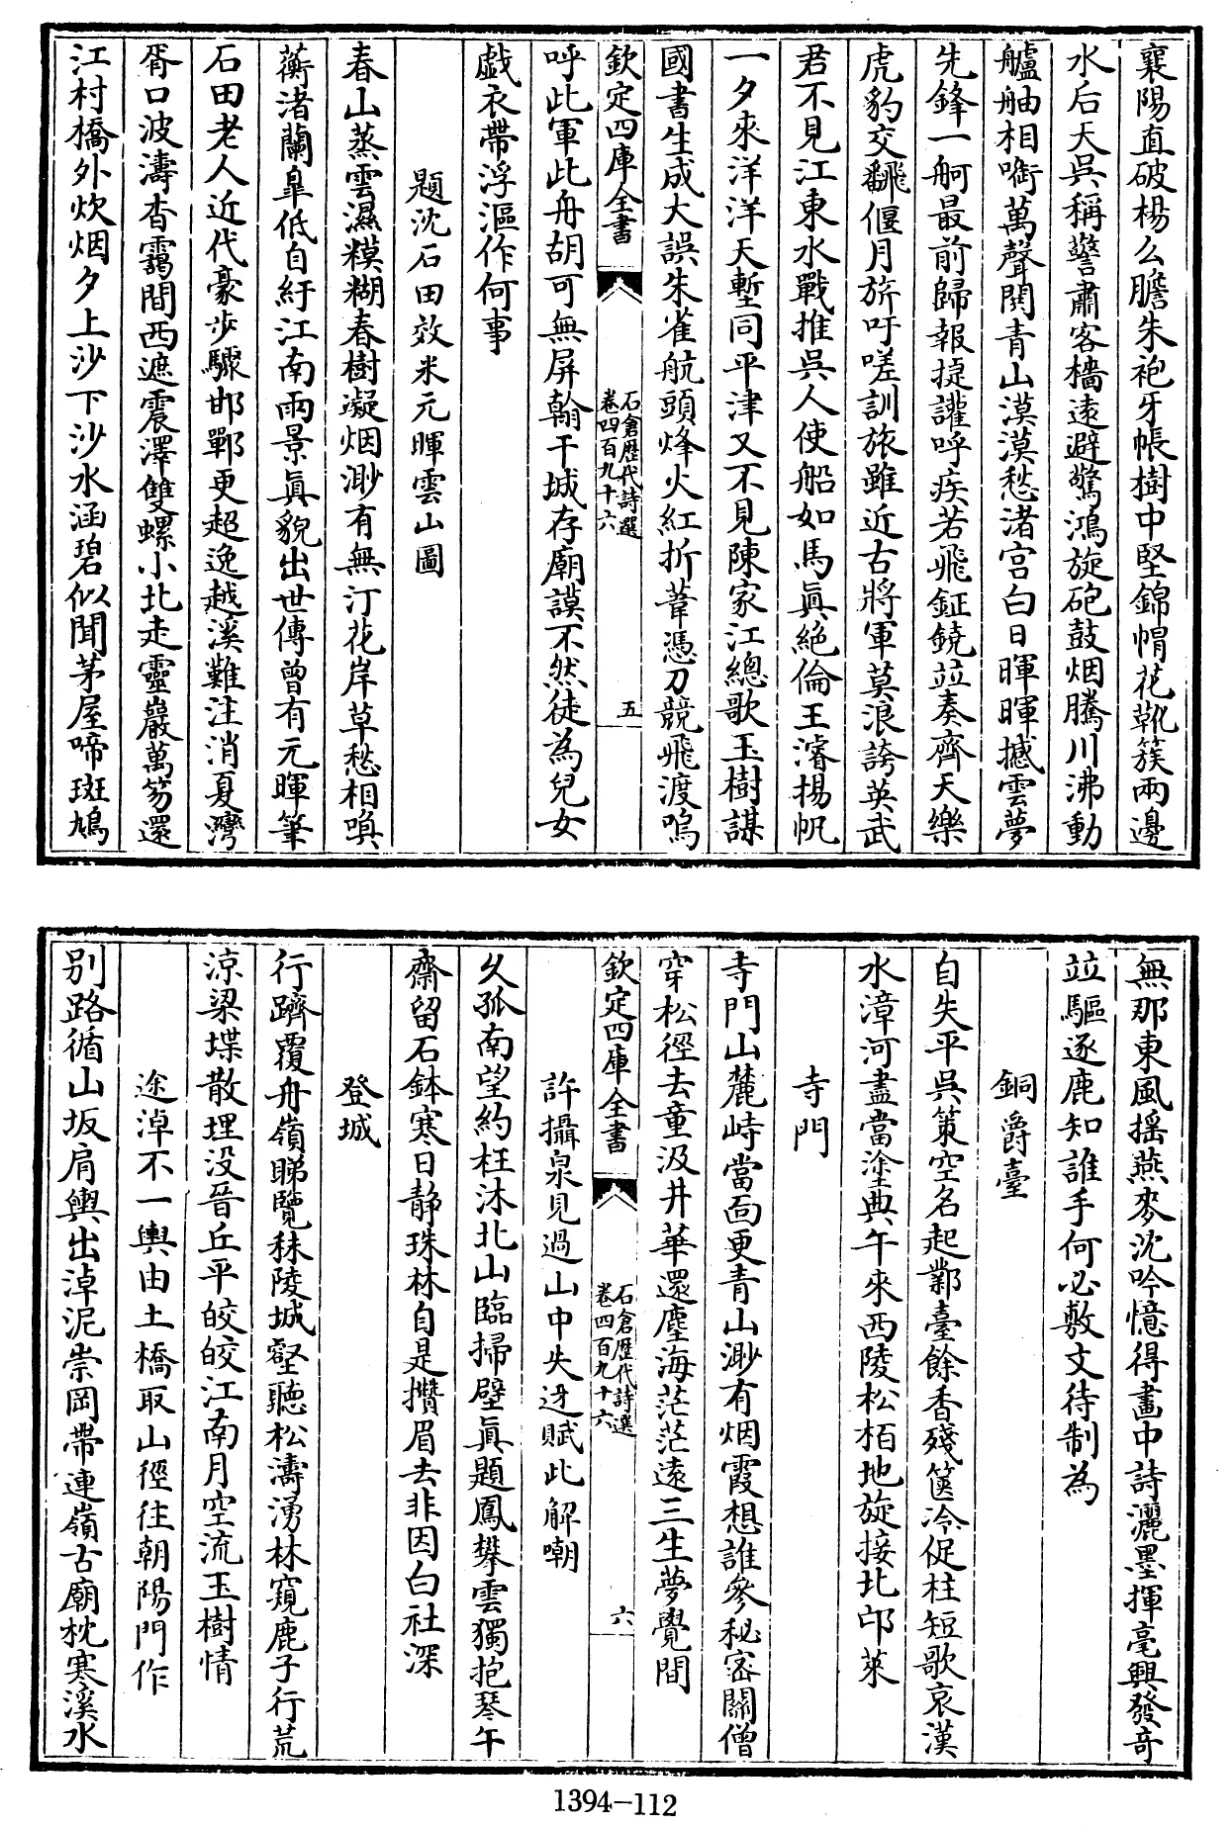 襄陽直破楊么膽朱袍牙帳樹中堅錦帽花靴簇兩邊
水后天吳稱警肅客檣遠避驚鴻旋砲鼓烟騰川沸動
艫舳相啣萬聲閧青山漠漠愁渚宮白日暉暉撼雲夢
先鋒一舸最前歸報捷讙呼疾若飛鉦鐃竝奏齊天樂
虎豹交翻偃月旂吁嗟訓旅雖近古將軍莫浪誇英武
君不見江東水戰推吳人使船如馬真絕倫王濬揚帆
一夕來洋洋天塹同平津又不見陳家江總歌玉樹謀
國書生成大誤朱雀航頭烽火紅折葦憑刀競飛渡嗚
欽定四庫全書
石倉歷代詩選
卷四百九十六
五
呼此軍此舟胡可無屏翰干城存廟謨不然徒為兒女
戯衣帶浮漚作何事
題沈石田效米元暉雲山圖
春山蒸雲濕糢糊春樹凝烟渺有無汀花岸草愁相喚
蘅渚蘭臯低自紆江南雨景真貌出世傳曾有元暉筆
石田老人近代豪步驟邯鄲更超逸越溪難注消夏灣
胥口波濤杳靄間西遮震澤雙螺小北走靈巖萬笏還
江村橋外炊烟夕上沙下沙水涵碧似聞茅屋啼斑鳩
無那東風摇燕麥沈吟憶得畫中詩灑墨揮毫興發奇
竝驅逐鹿知誰手何必敷文待制為
銅爵臺
自失平吳策空名起鄴臺餘香殘篋冷促柱短歌哀漢
水漳河盡當塗典午來西陵松栢地旋接北邙萊
寺門
寺門山麓峙當面更青山渺有烟霞想誰參秘密關僧
穿松徑去童汲井華還塵海茫茫遠三生夢覺間
欽定四庫全書
石倉歷代詩選
卷四百九十六
六
許攝泉見過山中失迓賦此解嘲
久孤南望約枉沐北山臨掃壁真題鳳攀雲獨抱琴午
齋留石鉢寒日静珠林自是攢眉去非因白社深
登城
行躋覆舟嶺睇覽秣陵城壑聽松濤湧林窺鹿子行荒
涼梁堞散埋没晉丘平皎皎江南月空流玉樹情
途淖不一輿由土橋取山徑往朝陽門作
別路循山坂肩輿出淖泥崇岡帶連嶺古廟枕寒溪水
1394-112